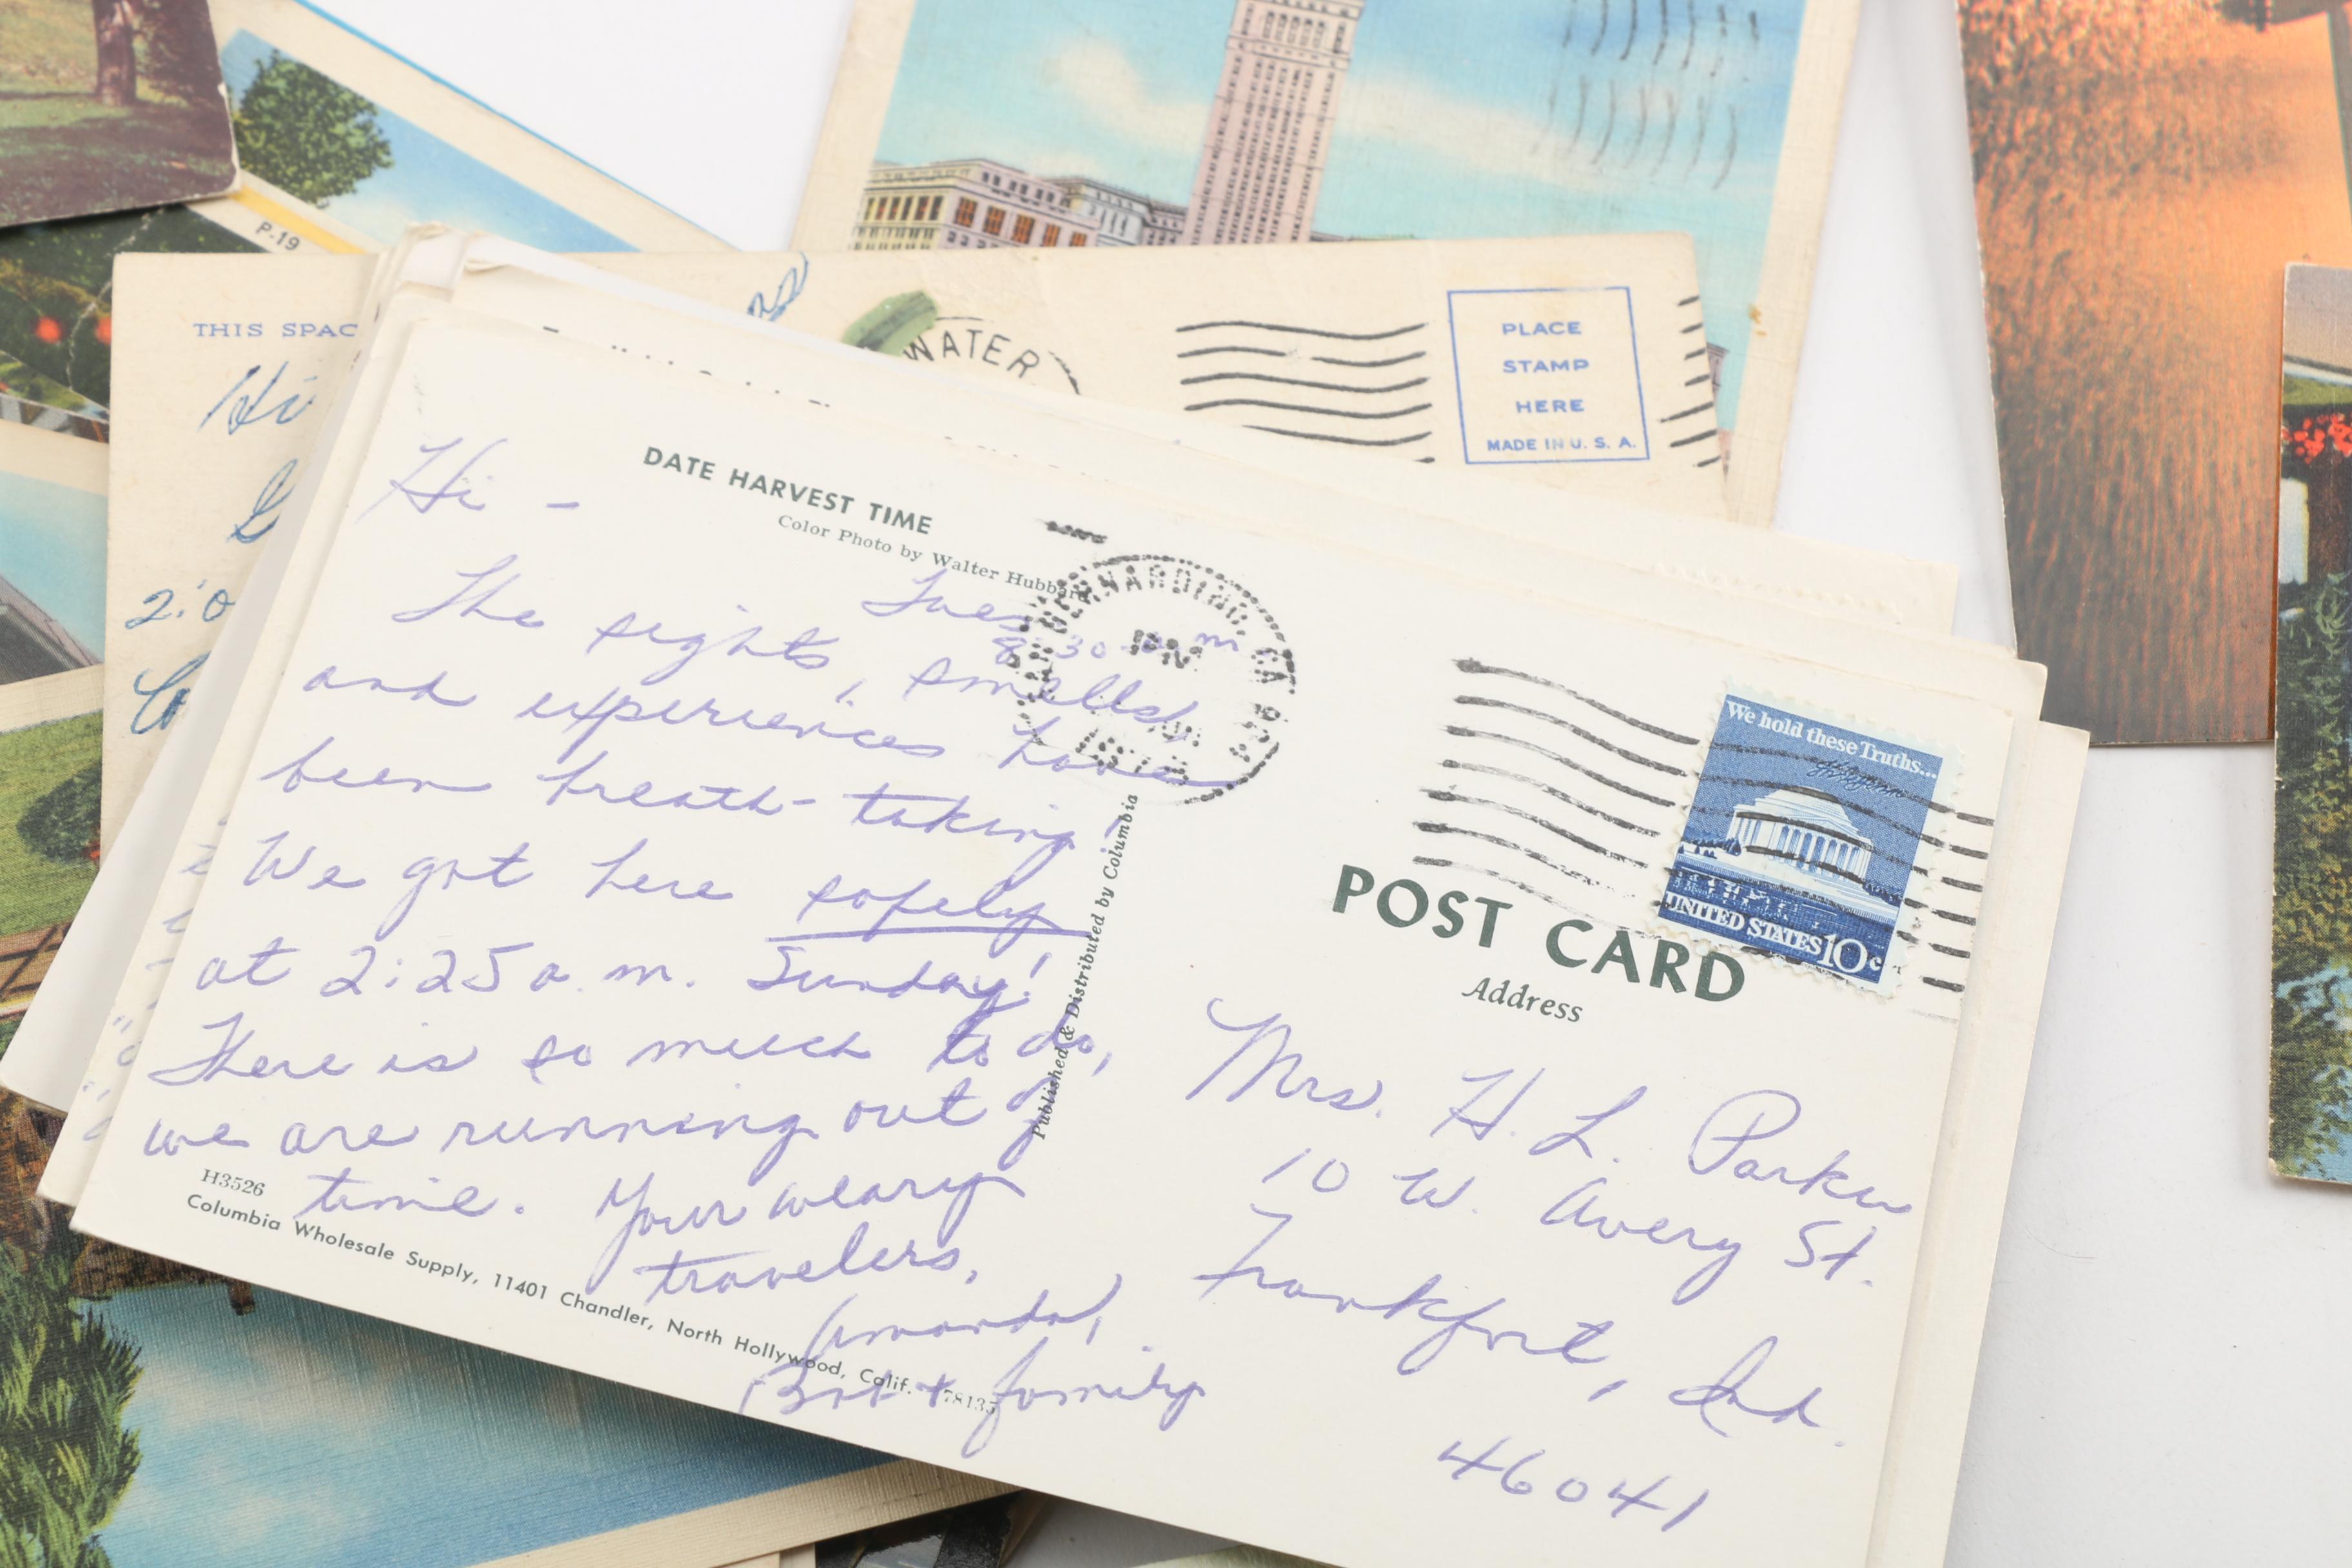 P.19
THIS SPAC
WATER
PLACE
STAMP
HERE
MADE IN U. S. A.
Hi
2:0
DATE HARVEST TIME
Color Photo by Walter Hubbard
Hi -
Tues
8:30 m
The sights, smells,
and experiences have
been breath-taking!
We got here safely
at 2:25 a.m. Sunday!
There is so much to do,
we are running out of
time. Your weary
travelers,
Amanda,
+ family
H3526
Columbia Wholesale Supply, 11401 Chandler, North Hollywood, Calif. 78135
Published & Distributed by Columbia
SAN BERNARDINO, CA
PM
We hold these Truths...
UNITED STATES 10c
POST CARD
Address
Mrs. H. L. Parker
10 W. Avery St.
Frankfort, Ind.
46041